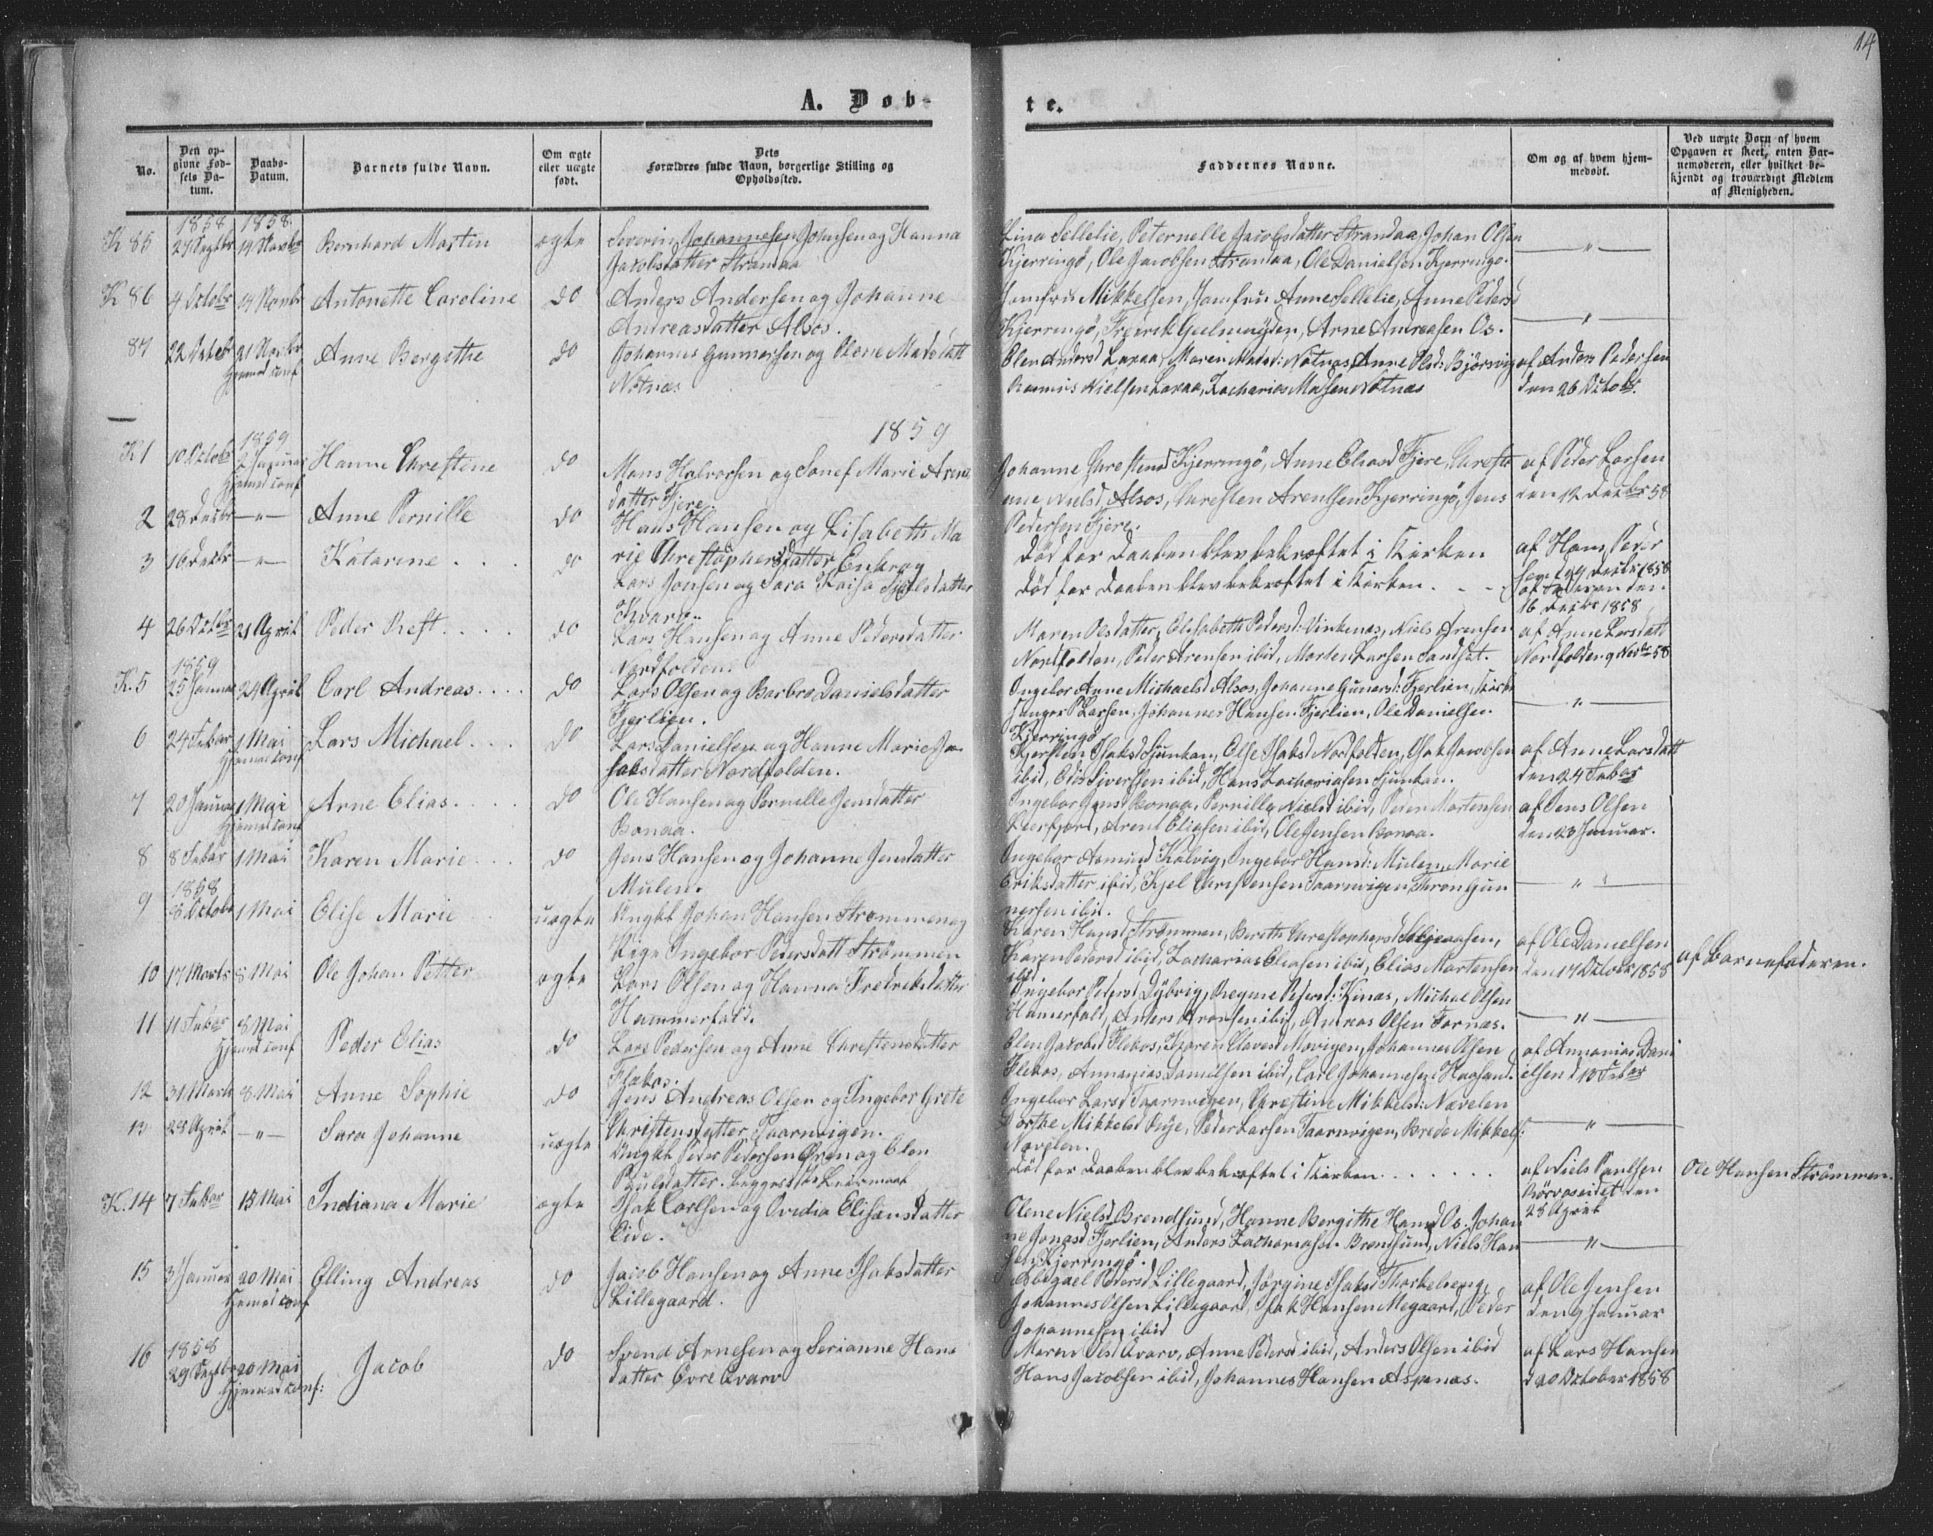 14
A. Døbte.
No.
Den opgivne Fødsels Datum.
Daabs-Datum.
Barnets fulde Navn.
Om ægte eller uægte født.
Dets Forældres fulde Navn, borgerlige Stilling og Opholdssted.
Faddernes Navne.
Om og af hvem hjemmedøbt.
Ved uægte Børn af hvem Opgaven er skeet, enten Barnemoderen, eller hvilket bekjendt og troværdigt Medlem af Menigheden.
1858 1858
K 85 27 Septbr 14 Novbr Bernhard Morten ægte Severin Johannesen Johnsen og Hanna
Jacobsdatter Strandaa
Lina Sellelie, Peternelle Jacobsdatter Strandaa, Johan Olsen
Kjerringø, Ole Jacobsen Strandaa, Ole Danielsen Kjerringø. — " —
K 86 4 Octobr 14 Novbr Antonette Caroline do Anders Andersen og Johanne
Andreasdatter Alsos.
Jomfru Mikkelsen, Jomfru Anne Sellelie, Anne Pedersd
Kjerringø, Fredrik Gjelmeyden, Arne Andreasen Os. — " —
87 22 Octobr 21 Novbr Anne Bergithe do Johannes Gunnarsen og Olene Madsdatt
Hjemed conf Notnæs
Elen Andersd Laxaa, Maren Madsd: Notnæs, Anne Olsd: Bjørsvig
Rasmus Nielsen Laxaa, Zacharias Madsen Notnæs
af Anders Pedersen
den 26 Octobr.
1859
K 1 10 Octobr 2 Januar Hanne Chrestene do Mons Halvorsen og Sonef Marie Arens
Hjemed conf datter Fjere.
Johanne Chrestensd Kjerringø, Anne Eliasd Fjere, Chresti
ane Nielsd Alsos, Chresten Arentsen Kjerringø, Jens
Pedersen Fjere.
af Peder Larsen
den 12 Decbr 58
2 28 Decbr — " — Anne Pernille do Hans Hansen og Elisabeth Ma
rie Chrestophersdatter Enkrog
Død før Daaben blev bekræftet i Kirken
af Hans Peder
sen d 29 Decbr 1858
3 10 Decbr — " — Katarine . . . do Lars Jonsen og Sara Kaisa Fjelsdatter
Kvarv.
Død før Daaben blev bekræftet i Kirken. - -
af Faderen den
16 Decbr 1858
4 26 Octbr 21 April Peder Reft . . . . do Lars Hansen og Anne Pedersdatter
Nordfolden.
Maren Olsdatter, Elisabeth Pedersd: Vinkenæs, Niels Arensen
Nordfolden, Peder Arensen ibid, Morten Larsen Sandset.
af Anne Larsdatt
Nordfolden 9 Novbr 58
1859
K. 5 25 Januar 24 April Carl Andreas . . . . do Lars Olsen og Barbro Danielsdatter
Fjerlien.
Ingebor Anne Michaelsd Alsos, Johanne Gunersd: Fjerlien, Kirke
sanger P Larsen, Johannes Hansen Fjerlien, Ole Danielsen
Kjerringø — " —
6 24 Febar 1 Mai Lars Michael . . . do Lars Danielsen og Hanne Marie Ja
Hjemed conf kobsdatter Nordfolden.
Kjersten Isaksd Sjunkan, Else Isaksd Norfolden, Isak Jacobsen
ibid, Edis Siversen ibid, Hans Zachariasen Sjunkan.
af Anne Larsdatt
den 24 Febar
7 20 Januar 1 Mai Arne Elias . . . . do Ole Hansen og Pernelle Jensdatter
Hjemed conf Bonaa.
Ingebor Jensd Bonaa, Pernille Nielsd ibid, Peder Mortensen
Leerfjord, Arent Eliasen ibid, Ole Jensen Bonaa.
af Jens Olsen
den 23 Januar.
8 8 Febar 1 Mai Karen Marie . . . do Jens Hansen og Johanne Jensdatter
Mulen.
Ingebor Asmund Kalvig, Ingebor Hansd: Mulen, Marie
Eriksdatter ibid, Kjel Chrestensen Taarnvigen, Thron Gun
nersen ibid. — " —
1858
9 8 Octobr 1 Mai Elise Marie . . uægte Ungkl Johan Hansen Strømmen og
Pige Ingebor Pedersdatt Strømmen
Karen Hansd Strømmen, Bereth Chrestophersd Seljeaasen,
Karen Pedersd ibid, Zacharias Eliasen ibid, Elias Mortensen
ibid.
af Ole Danielsen
den 17 Octobr 1858
af Barnefaderen.
10 17 Marts 8 Mai Ole Johan Petter ægte Lars Olsen og Hanna Fredreksdatter
Hammerfald.
Ingebor Pedersd Dybvig, Regine Pedersd: Kinæs, Michal Olsen
Hamerfald, Anders Aronsen ibid, Andreas Olsen Fornæs. — " —
11 11 Febar 8 Mai Peder Elias do Lars Pedersen og Anne Chrestensdatter
Hjemed conf Flækos.
Elen Jacobsd Flekos, Karen Clavesd Movigen, Johannes Olsen
Flekos, Annanias Danielsen ibid, Carl Johannesen Haasand.
af Annanias Dani
elsen d 13 Febar
12 31 Marts 8 Mai Anne Sophie do Jens Andreas Olsen og Ingebor Grete
Christensdatter Taarnvigen.
Ingebor Larsd Taarnvigen, Chrestine Mikkelsd: Nævelen
Dorthe Mikkelsd Rye, Peder Larsen Taarnvigen, Brede Mikkels:
Nævelen. — " —
13 28 April — " — Sara Johanne uægte Ungkl Peder Pedersen Øren og Elen
Pulsdatter.
Død før Daaben blev bekræftet i Kirken . . . . . .
af Niels Paulsen
Rørvaseidet den
28 April
Ole Hansen Strømmen.
K. 14 7 Febar 15 Mai Indiana Marie ægte Isak Carlsen og Ovedia Elisensdatter
Eide.
Olene Nielsd Brendsund, Hanne Bergithe Hansd Os, Johan
ne Jonasd Fjerlien, Anders Zachariasen Brendsund, Niels Han
sen Kjerringø. — " —
15 3 Januar 20 Mai Elling Andreas do Jacob Hansen og Anne Isaksdatter
Hjemed conf Lillegaard.
Abegael Pedersd Lillegaard, Jørgine Isaksd Thorkelseng,
Johannes Olsen Lillegaard, Isak Hansen Megaard, Peder
Johannesen ibid
af Ole Jensen
den 9 Januar
1858
16 29 Septbr 20 Mai Jacob do Svend Arnesen og Serianne Hans
Hjemed conf: datter Øvre Qvarv
Maren Olsd Qvarv, Anne Pedersd ibid, Anders Olsen ibid
Hans Jacobsen ibid, Johannes Hansen Aspenæs.
af Lars Hansen
d 20 October 1858